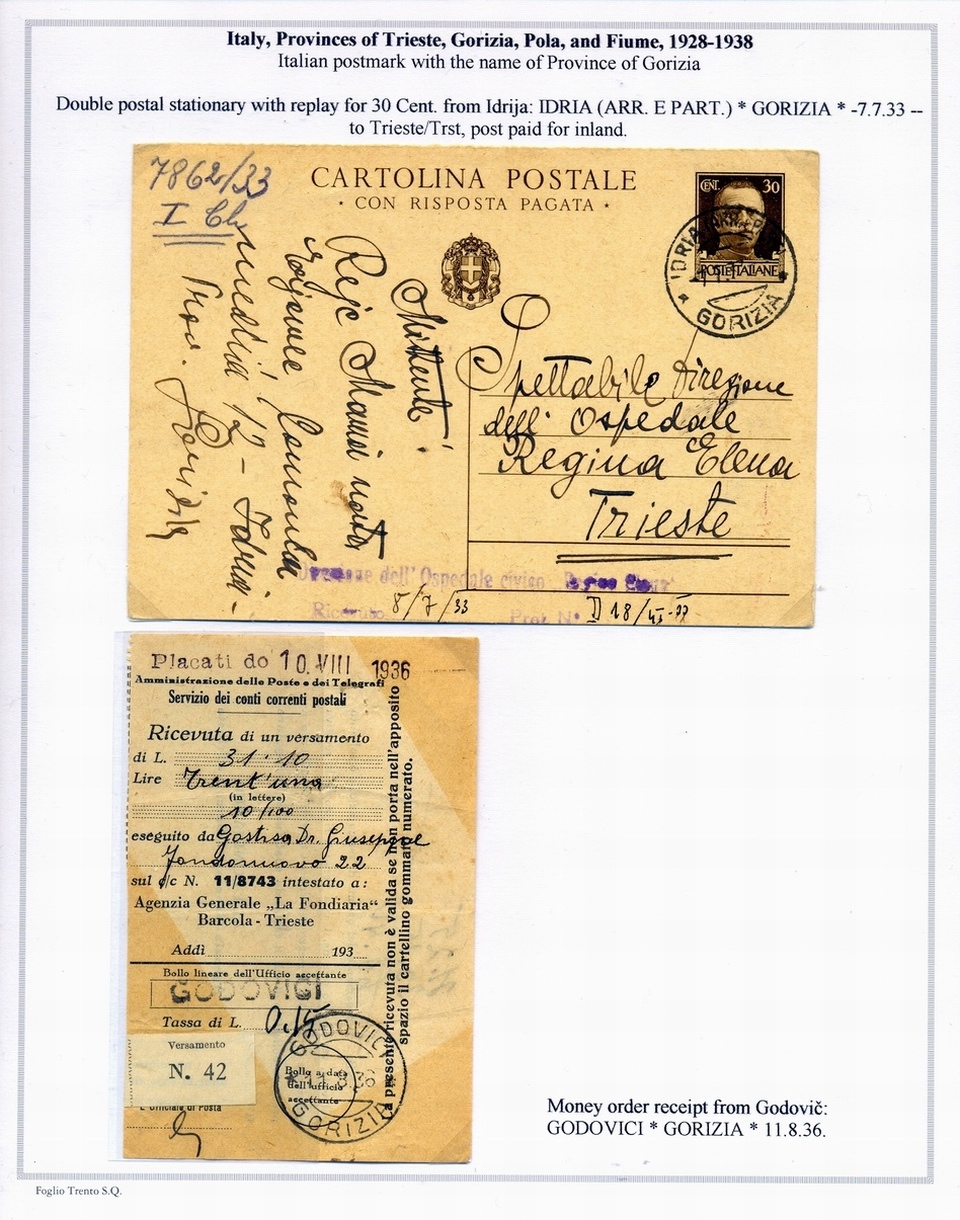 Italy, Provinces of Trieste, Gorizia, Pola, and Fiume, 1928-1938
Italian postmark with the name of Province of Gorizia
Double postal stationary with replay for 30 Cent. from Idrija: IDRIA (ARR. E PART.) * GORIZIA * -7.7.33 --
to Trieste/Trst, post paid for inland.
7862/33
I
CARTOLINA POSTALE
· CON RISPOSTA PAGATA ·
CENT. 30
POSTE ITALIANE
IDRIA
* GORIZIA *
Mittente:
Reje
12 - Idria -
Prov. Gorizia
Spettabile Direzione
dell' Ospedale
Regina Elena
Trieste
Direzione dell'Ospedale civico Regina Elena
Ricevuto 8/7/33 Prot. N°
Placati do 10 VIII 1936
Amministrazione delle Poste e dei Telegrafi
Servizio dei conti correnti postali
Ricevuta di un versamento
di L. 31·10
Lire Trent'una
(in lettere)
10/100
eseguito da Dr. Giuseppe
22
sul c/c N. 11/8743 intestato a:
Agenzia Generale „La Fondiaria“
Barcola - Trieste
Addì 193
Bollo lineare dell'Ufficio accettante
GODOVICI
Tassa di L. 0.15
Versamento
N. 42
L'Ufficiale di Posta
GODOVICI
Bollo a data
dell'ufficio
accettante
11.8.36
GORIZIA
La presente ricevuta non è valida se non porta nell'apposito
spazio il cartellino gommato numerato.
Money order receipt from Godovič:
GODOVICI * GORIZIA * 11.8.36.
Foglio Trento S.Q.